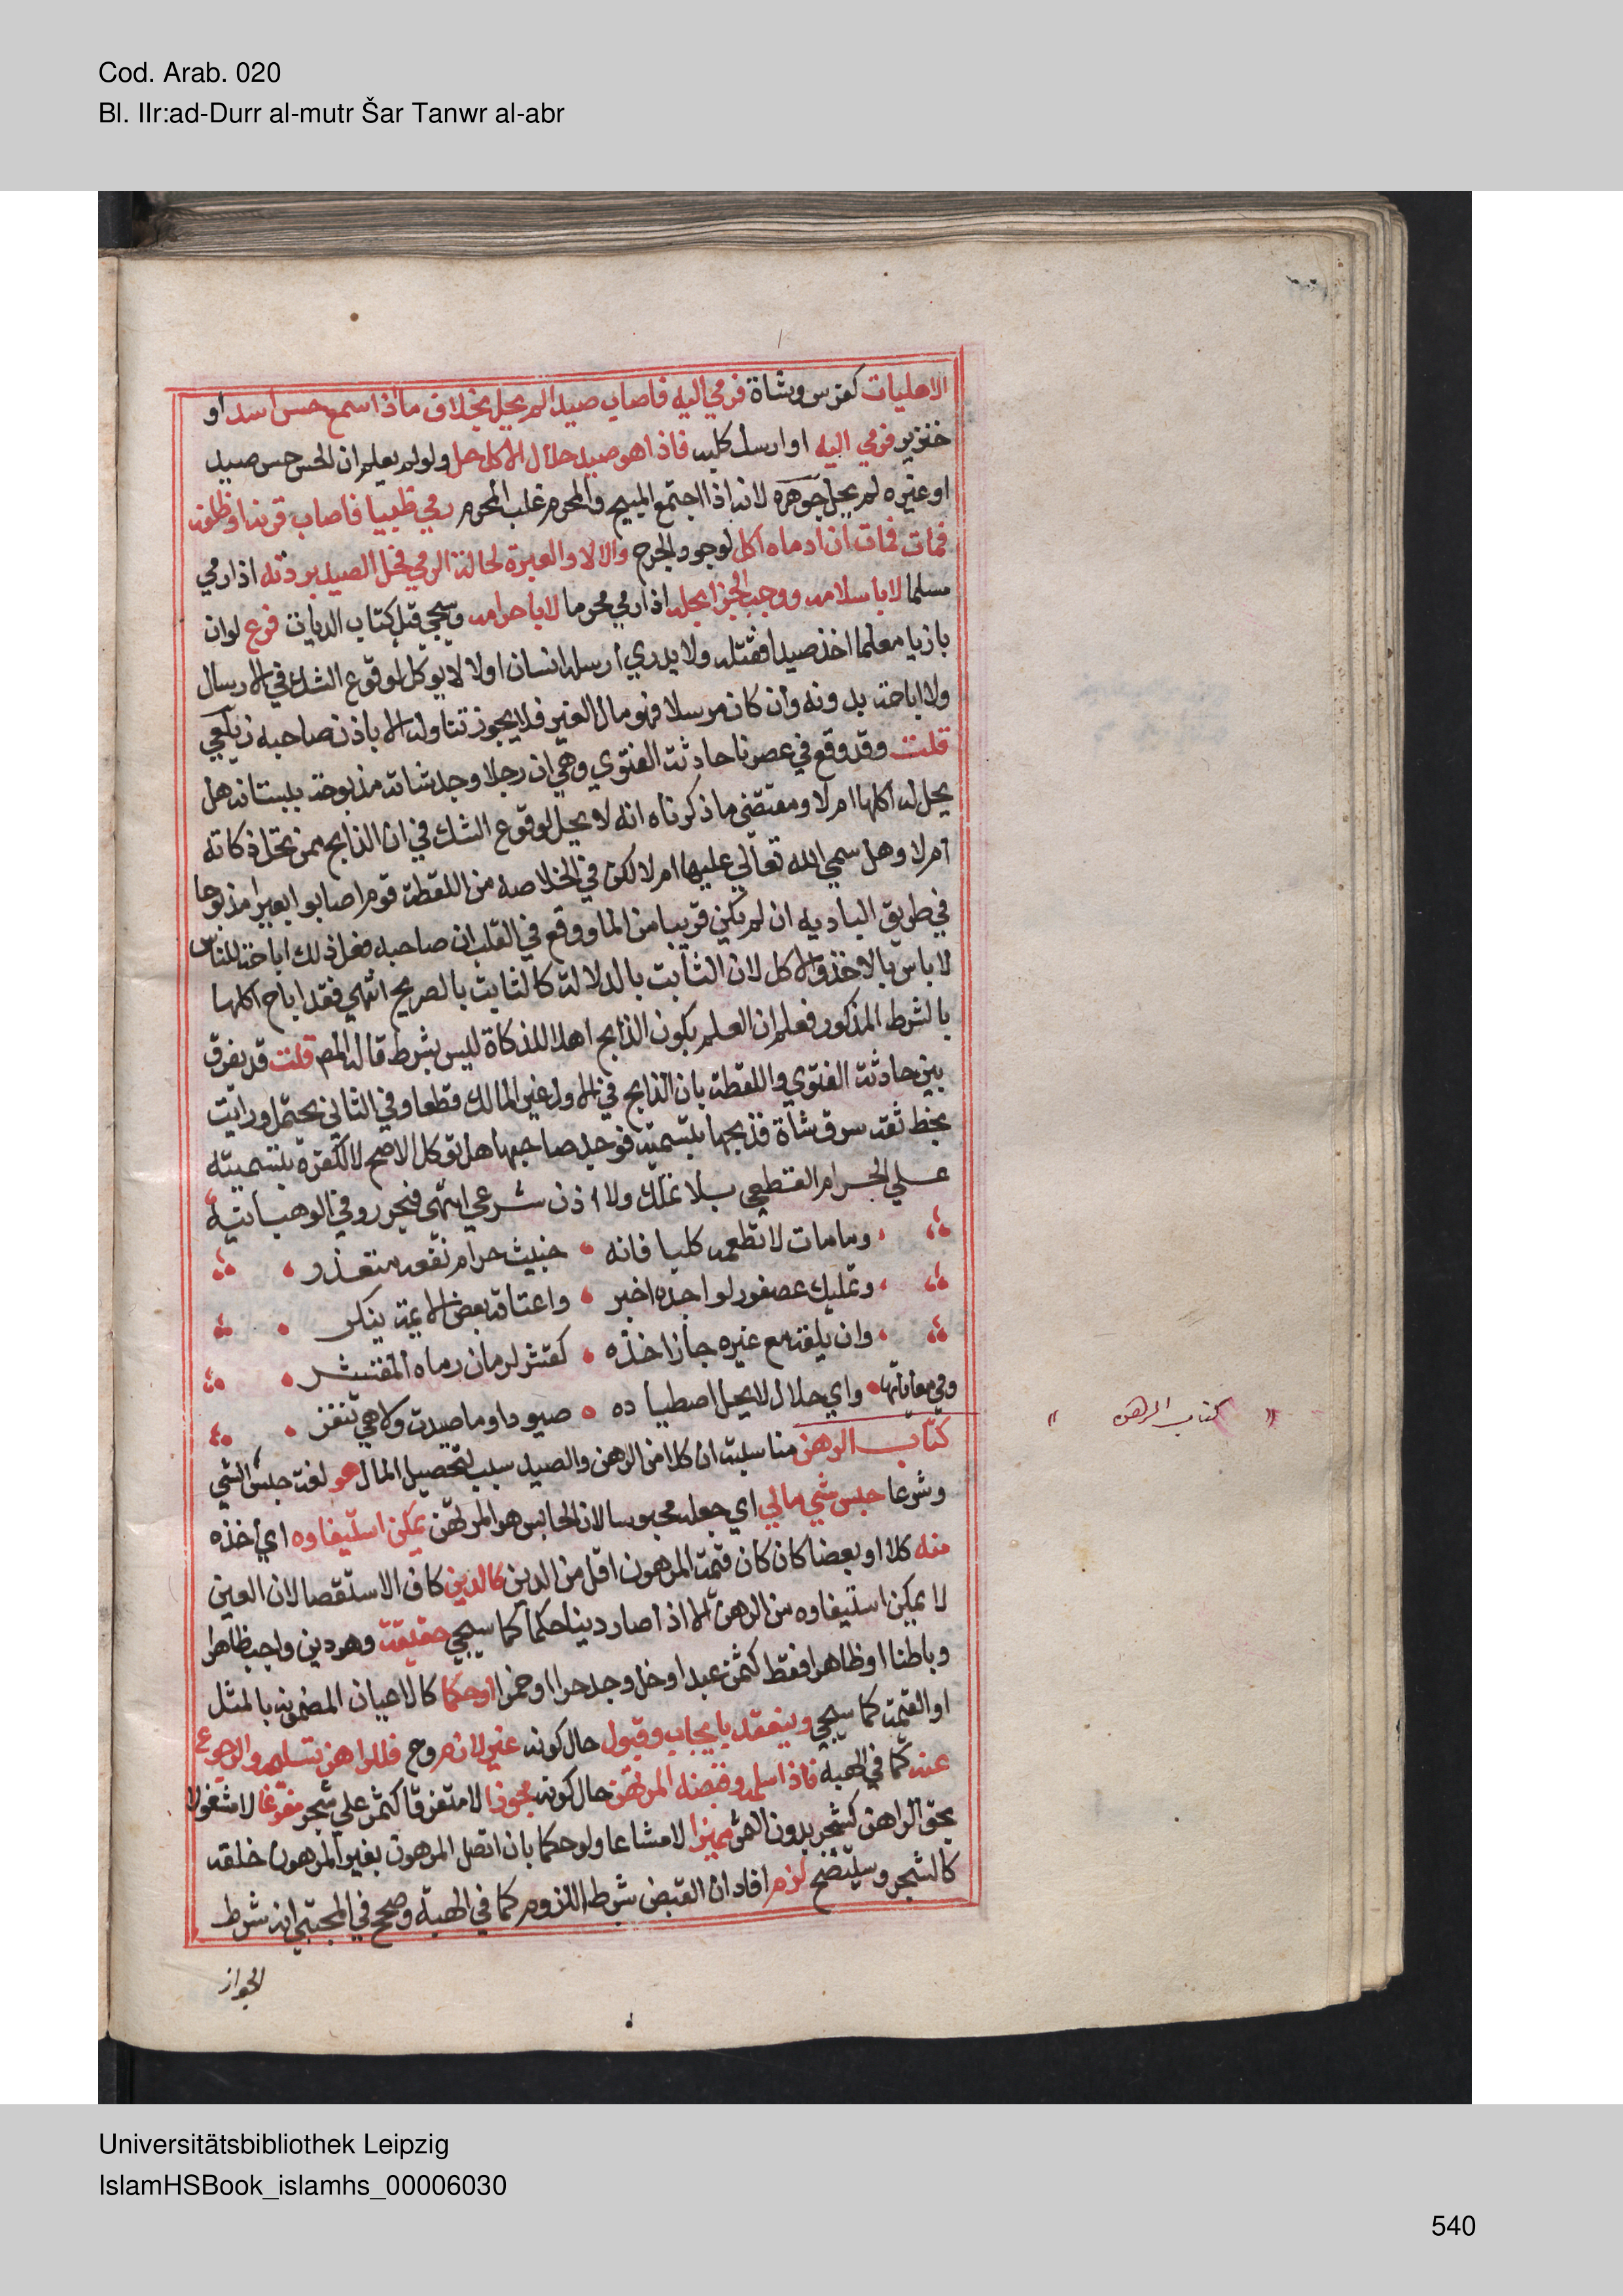 Cod. Arab. 020
Bl. IIr:ad-Durr al-mutr Šar Tanwr al-abr
الاهليات كفرس وشاة فرمي اليه فاصاب صيدا لم يحل بخلاف ما اذا سمع حس اسد او
خنزير فرمي اليه او ارسل كلبه فاذا هو صيد حلال الاكل حل ولو لم يعلم ان الحس حس صيد
او غيره لم يحل جوهره لانه اذا اجتمع المبيح والمحرم غلب المحرم رمي ظبيا فاصاب قرنه او ظلفه
فمات فمات ان ادماه اكل لوجود الجرح والا لا والعبرة لحالة الرمي فحل الصيد بردته اذا رمي
مسلما لا باسلامه ووجب الجزا بحله اذا رمي محرما لا باحرامه وسيجي قبل كتاب الديات فرع لو ان
بازيا معلما اخذ صيدا فقتله ولا يدري ارسله انسان او لا لا يوكل لوقوع الشك في الارسال
ولا اباحة بدونه وان كان مرسلا فهو مال الغير فلا يجوز تناوله الا باذن صاحبه زيلعي
قلت وقد وقع في عصرنا حادثة الفتوي وهي ان رجلا وجد شاته مذبوحة ببستانه هل
يحل له اكلها ام لا ومقتضى ما ذكرناه انه لا يحل لوقوع الشك في ان الذابح ممن تحل ذكاته
ام لا وهل سمي الله تعالي عليها ام لا لكن في الخلاصه من اللقطة قوم اصابوا بعيرا مذبوحا
في طريق الباديه ان لم يكن قريبا من الما ووقع في القلب ان صاحبه فعل ذلك اباحة للناس
لا باس بالاخذ والاكل لان الثابت بالدلالة كالثابت بالصريح انتهي فقد اباح اكلها
بالشرط المذكور فعلم ان العلم بكون الذابح اهلا للذكاة ليس بشرط قاله المص قلت قد يفرق
بين حادثة الفتوي واللقطة بان الذابح في الاول غير المالك قطعا وفي الثاني يحتمل ورايت
بخط ثقة سرق شاة فذبحها بتسمية فوجد صاحبها هل توكل الاصح لا لكفره بتسميته
علي الحرام القطعي بلا تملك ولا اذن شرعي انتهى فيحرر وفي الوهبانية
وما مات لا تطعمه كلبا فانه خبيث حرام نفعه متعذر
وتمليك عصفور لواجده اخبر واعتاقه بعض الايمة ينكر
وان يلقه مع غيره جاز اخذه كقشر لرمان رماه المقشر
وفي معاياتها واي حلال لا يحل اصطياده صيودا وما صيدت ولا هي تنفر
كتاب الرهن مناسبته ان كلا من الرهن والصيد سبب لتحصيل المال هو لغة حبس الشي
وشرعا حبس شي مالي اي جعله محبوسا لان الحابس هو المرتهن يمكن استيفاوه اي اخذه
منه كلا او بعضا كان كان قيمة المرهون اقل من الدين كالدين كاف الاستقصا لان العين
لا يمكن استيفاوه من الرهن الا اذا صار دينا حكما كما سيجي حقيقة وهو دين واجب ظاهرا
وباطنا او ظاهرا فقط كثمن عبد او خل وجد حرا او خمرا او حكما كالاعيان المضمونه بالمثل
او القيمة كما سيجي وينعقد بايجاب وقبول حال كونه غير لازم وح فللراهن تسليمه والرجوع
عنه كما في الهبه فاذا سلمه وقبضه المرتهن حال كونه محوزا لا متفرقا كثمر علي شجر مفرغا لا مشغولا
بحق الراهن كشجر بدون الثمر مميزا لا مشاعا ولو حكما بان اتصل المرهون بغير المرهون خلقه
كالشجر وسيتضح لزم افاد ان القبض شرط اللزوم كما في الهبة وصحح في المجتبي انه شرط
الجواز
كتاب الرهن
Universitätsbibliothek Leipzig
IslamHSBook_islamhs_00006030
540